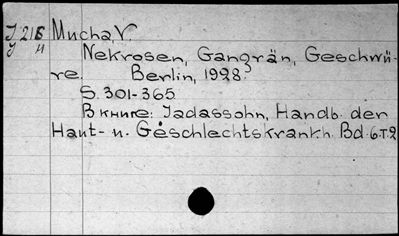 J 216 Mucha, V.
J M Nekrosen, Gangrän, Geschwü-
re. Berlin, 1928.
S. 301-365
В книге: Jadassohn, Handb. der
Haut- u. Geschlechtskrankh. Bd. 6.T.2